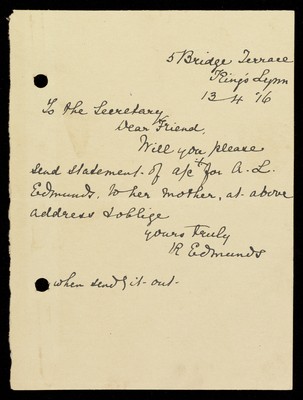 5 Bridge Terrace
King's Lynn
13-4-'16
To the Secretary
Dear Friend,
Will you please
send statement of a/ct for A. L.
Edmunds, to her mother, at above
address & oblige
yours truly
R Edmunds
when send it out